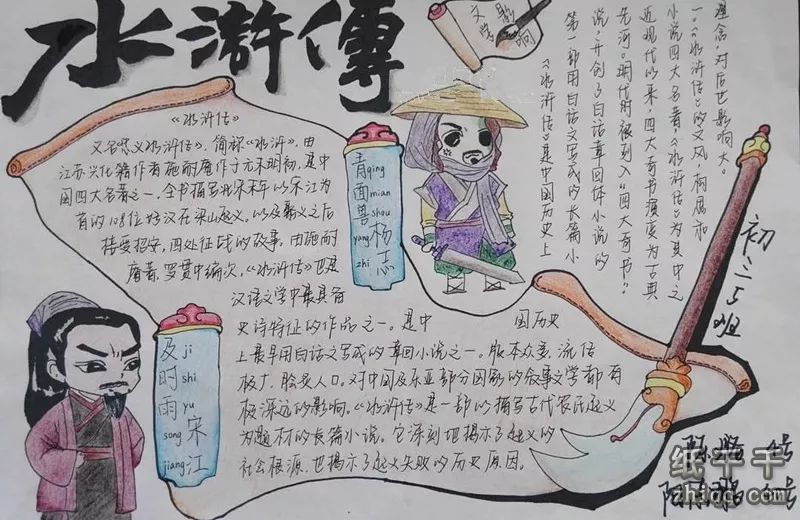 水滸傳
《水浒传》
又名《忠义水浒传》，简称《水浒》，由
江苏兴化籍作者施耐庵作于元末明初，是中
国四大名著之一。全书描写北宋末年以宋江为
首的108位好汉在梁山起义，以及聚义之后
接受招安，四处征战的故事。由施耐
庵著，罗贯中编次，《水浒传》也是
汉语文学中最具备
史诗特征的作品之一。是中 国历史
上最早用白话文写成的章回小说之一。版本众多，流传
极广，脍炙人口。对中国及东亚部分国家的叙事文学都有
极深远的影响。《水浒传》是一部以描写古代农民起义
为题材的长篇小说。它深刻地揭示了起义的
社会根源，也揭示了起义失败的历史原因。
青qing
面mian
兽shou
yang杨
zhi志
及ji
时shi
雨yu
song宋
jiang江
文学影响
《水浒传》是中国历史上
第一部用白话文写成的长篇小
说，开创了白话章回体小说的
先河。明代时，被列入“四大奇书”
近现代以来，四大奇书演变为古典
小说四大名著，《水浒传》为其中之
一。《水浒传》的文风、构局和
理念，对后世影响大。
初二5班
纸千千
zhiqq.com